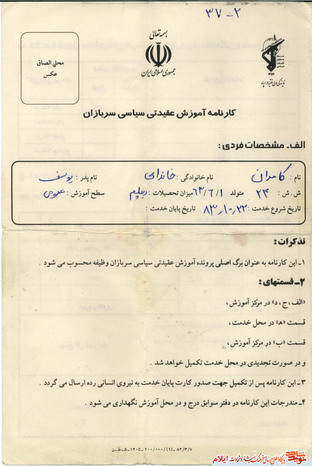 ۳۷-۲
بسمه تعالی
جمهوری اسلامی ایران
محل الصاق
عکس
کارنامه آموزش عقیدتی سیاسی سربازان
الف- مشخصات فردی:
نام: کامران نام خانوادگی: نام پدر: یوسف
ش.ش: ۲۴ متولد ۶۳/۶/۱ میزان تحصیلات: دیپلم سطح آموزش: عمومی
تاریخ شروع خدمت: ۸۳،۱۰،۲۲ تاریخ پایان خدمت:
تذکرات:
۱-این کارنامه به عنوان برگ اصلی پرونده آموزش عقیدتی سیاسی سربازان وظیفه محسوب می شود.
۲-قسمتهای:
«الف،ج،د» در مرکز آموزش،
قسمت «ه» در محل خدمت،
قسمت «ب» در مرکز آموزش،
و در صورت تجدیدی در محل خدمت تکمیل خواهد شد.
۳-این کارنامه پس از تکمیل جهت صدور کارت پایان خدمت به نیروی انسانی رده ارسال می گردد.
۴-مندرجات این کارنامه در دفتر سوابق درج و در محل آموزش نگهداری می شود.
ایلام